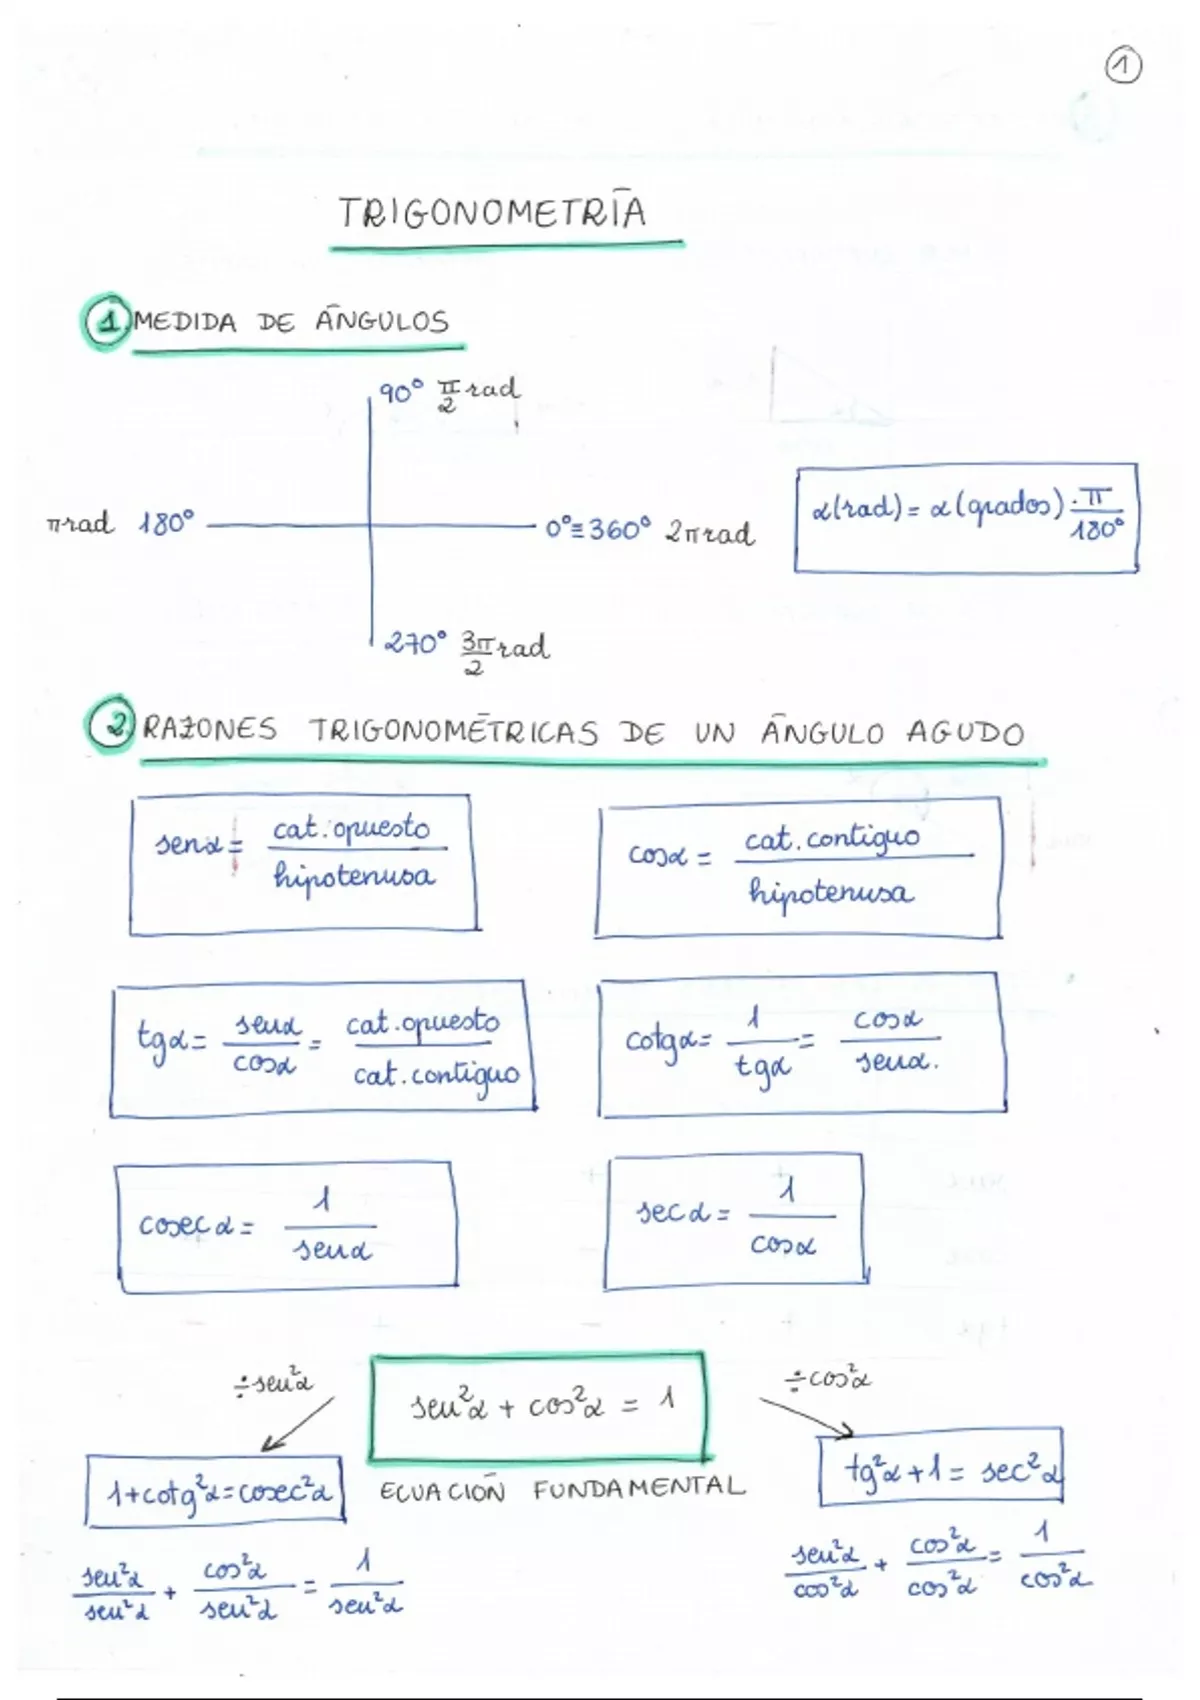 ①
TRIGONOMETRÍA
1. MEDIDA DE ÁNGULOS
90° π/2 rad
π rad 180°
0°≡360° 2π rad
α(rad) = α(grados) · π/180°
270° 3π/2 rad
2. RAZONES TRIGONOMÉTRICAS DE UN ÁNGULO AGUDO
senα = cat. opuesto / hipotenusa
cosα = cat. contiguo / hipotenusa
tgα = senα/cosα = cat. opuesto / cat. contiguo
cotgα = 1/tgα = cosα/senα.
cosecα = 1/senα
secα = 1/cosα
÷sen²α
sen²α + cos²α = 1
÷cos²α
1+cotg²α=cosec²α
ECUACIÓN FUNDAMENTAL
tg²α+1 = sec²α
sen²α/sen²α + cos²α/sen²α = 1/sen²α
sen²α/cos²α + cos²α/cos²α = 1/cos²α